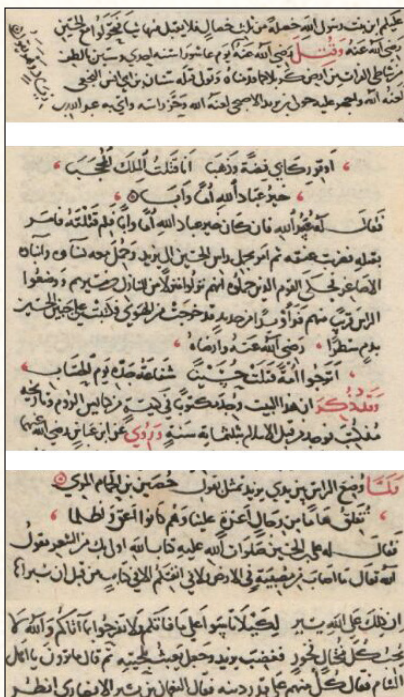 عليهم ابن بنت رسول الله خصلة من تلك خصال فلا تقبل منها شيا فتحولوا مع الحسين
رضي الله عنه وقتل رضي الله عنه يوم عاشورا سنة احدى وستين بالطف
من شاطي الفرات من ارض كربلا وتولى قتله سنان بن ابي انس النخعي
لعنه الله واجهز عليه خولي بن يزيد الاصبحي لعنه الله وحز راسه واتى به عبد الله
اوقر ركابي فضة وذهبا انا قتلت الملك المحجبا
خير عباد الله اما وابا
فقال له عبيد الله فان كان خير عباد الله اما وابا فلم قتلته فامر
بقتله فضربت عنقه ثم امر بحمل راس الحسين الى يزيد وحمل معه نساوه وبناته
الاصاغر فحكى القوم الذين حملوه انهم نزلوا منزلا من المنازل ووضعوا
الراس قريب منهم فراوا يدا من حديد قد خرجت من الهوى فكتبت على جبين الحسين
بدم سطرا رضي الله عنه وارضاه
اترجوا امة قتلت حسينا شفاعة جده يوم الحساب
وقد ذكر ان هذا البيت وجد مكتوبا في كنيسة من كنايس الروم وتاريخه
مذ كتب فوجد من قبل الاسلام بثلثماية سنة وروي عن ابن عباس رضي الله عنهما
فلما وضع الراس بين يدي يزيد تمثل بقول حصين بن الحمام المري
نفلق هاما من رجال اعزة علينا وهم كانوا اعق واظلما
فقال له علي بن الحسين صلوات الله عليه كتاب الله اولى بك من الشعر يقول
الله تعالى ما اصاب من مصيبة في الارض ولا في انفسكم الا في كتاب من قبل ان نبراها
ان ذلك على الله يسير لكيلا تاسوا على ما فاتكم ولا تفرحوا بما اتاكم والله لا
يحب كل مختال فخور فغضب يزيد وجعل يعبث بلحيته ثم قال ما ترون يا اهل
الشام فقال كل منهم فقال النعمان بن بشير الانصاري انظر